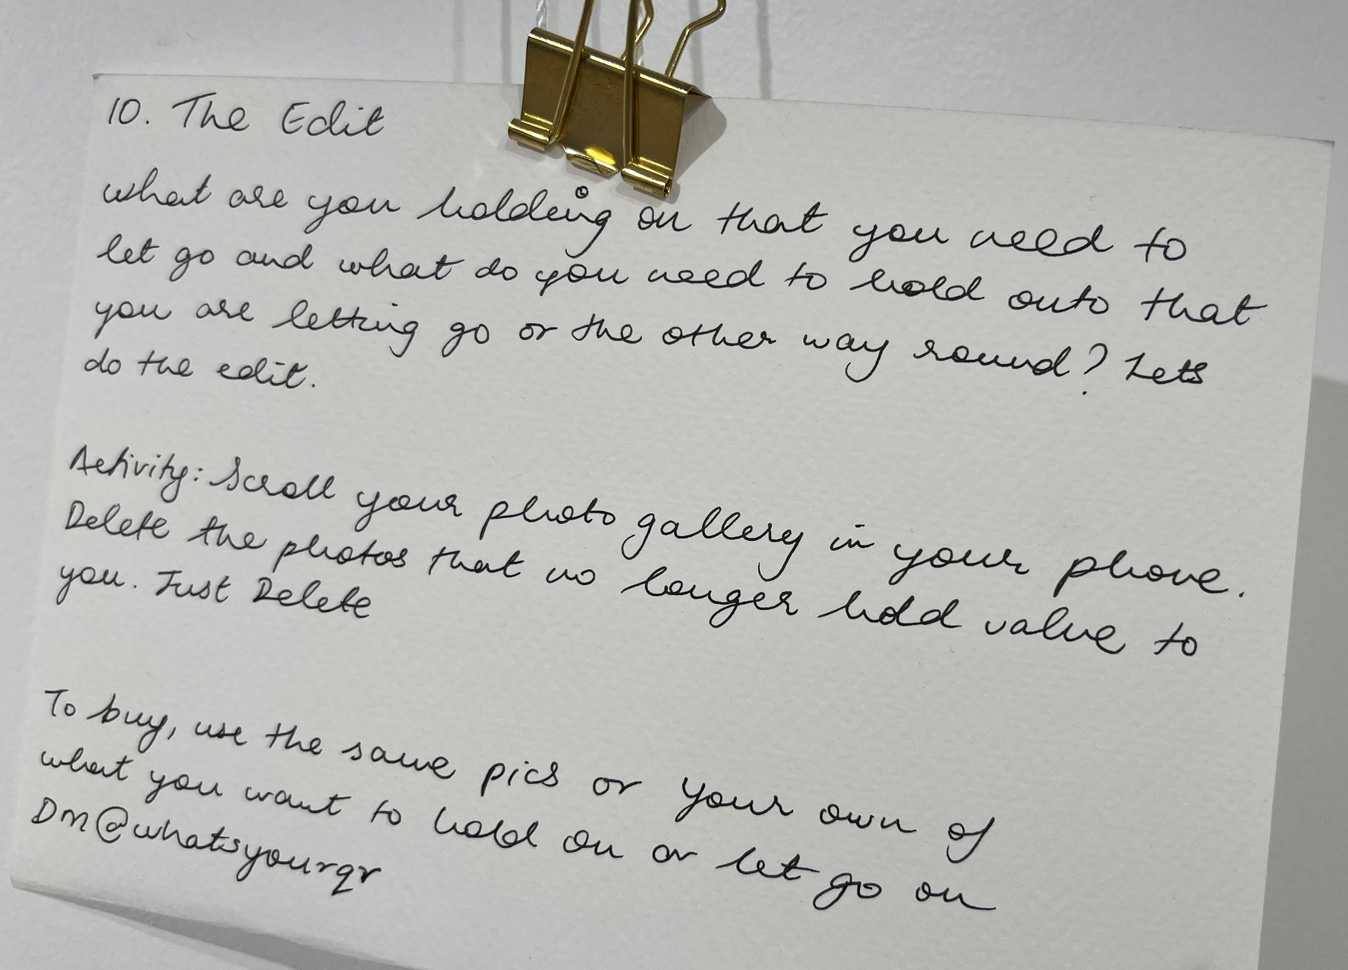 10. The Edit
what are you holding on that you need to
let go and what do you need to hold onto that
you are letting go or the other way round? Lets
do the edit.
Activity: Scroll your photo gallery in your phone.
Delete the photos that no longer hold value to
you. Just Delete
To buy, use the same pics or your own of
what you want to hold on or let go on
Dm@whatsyourqr